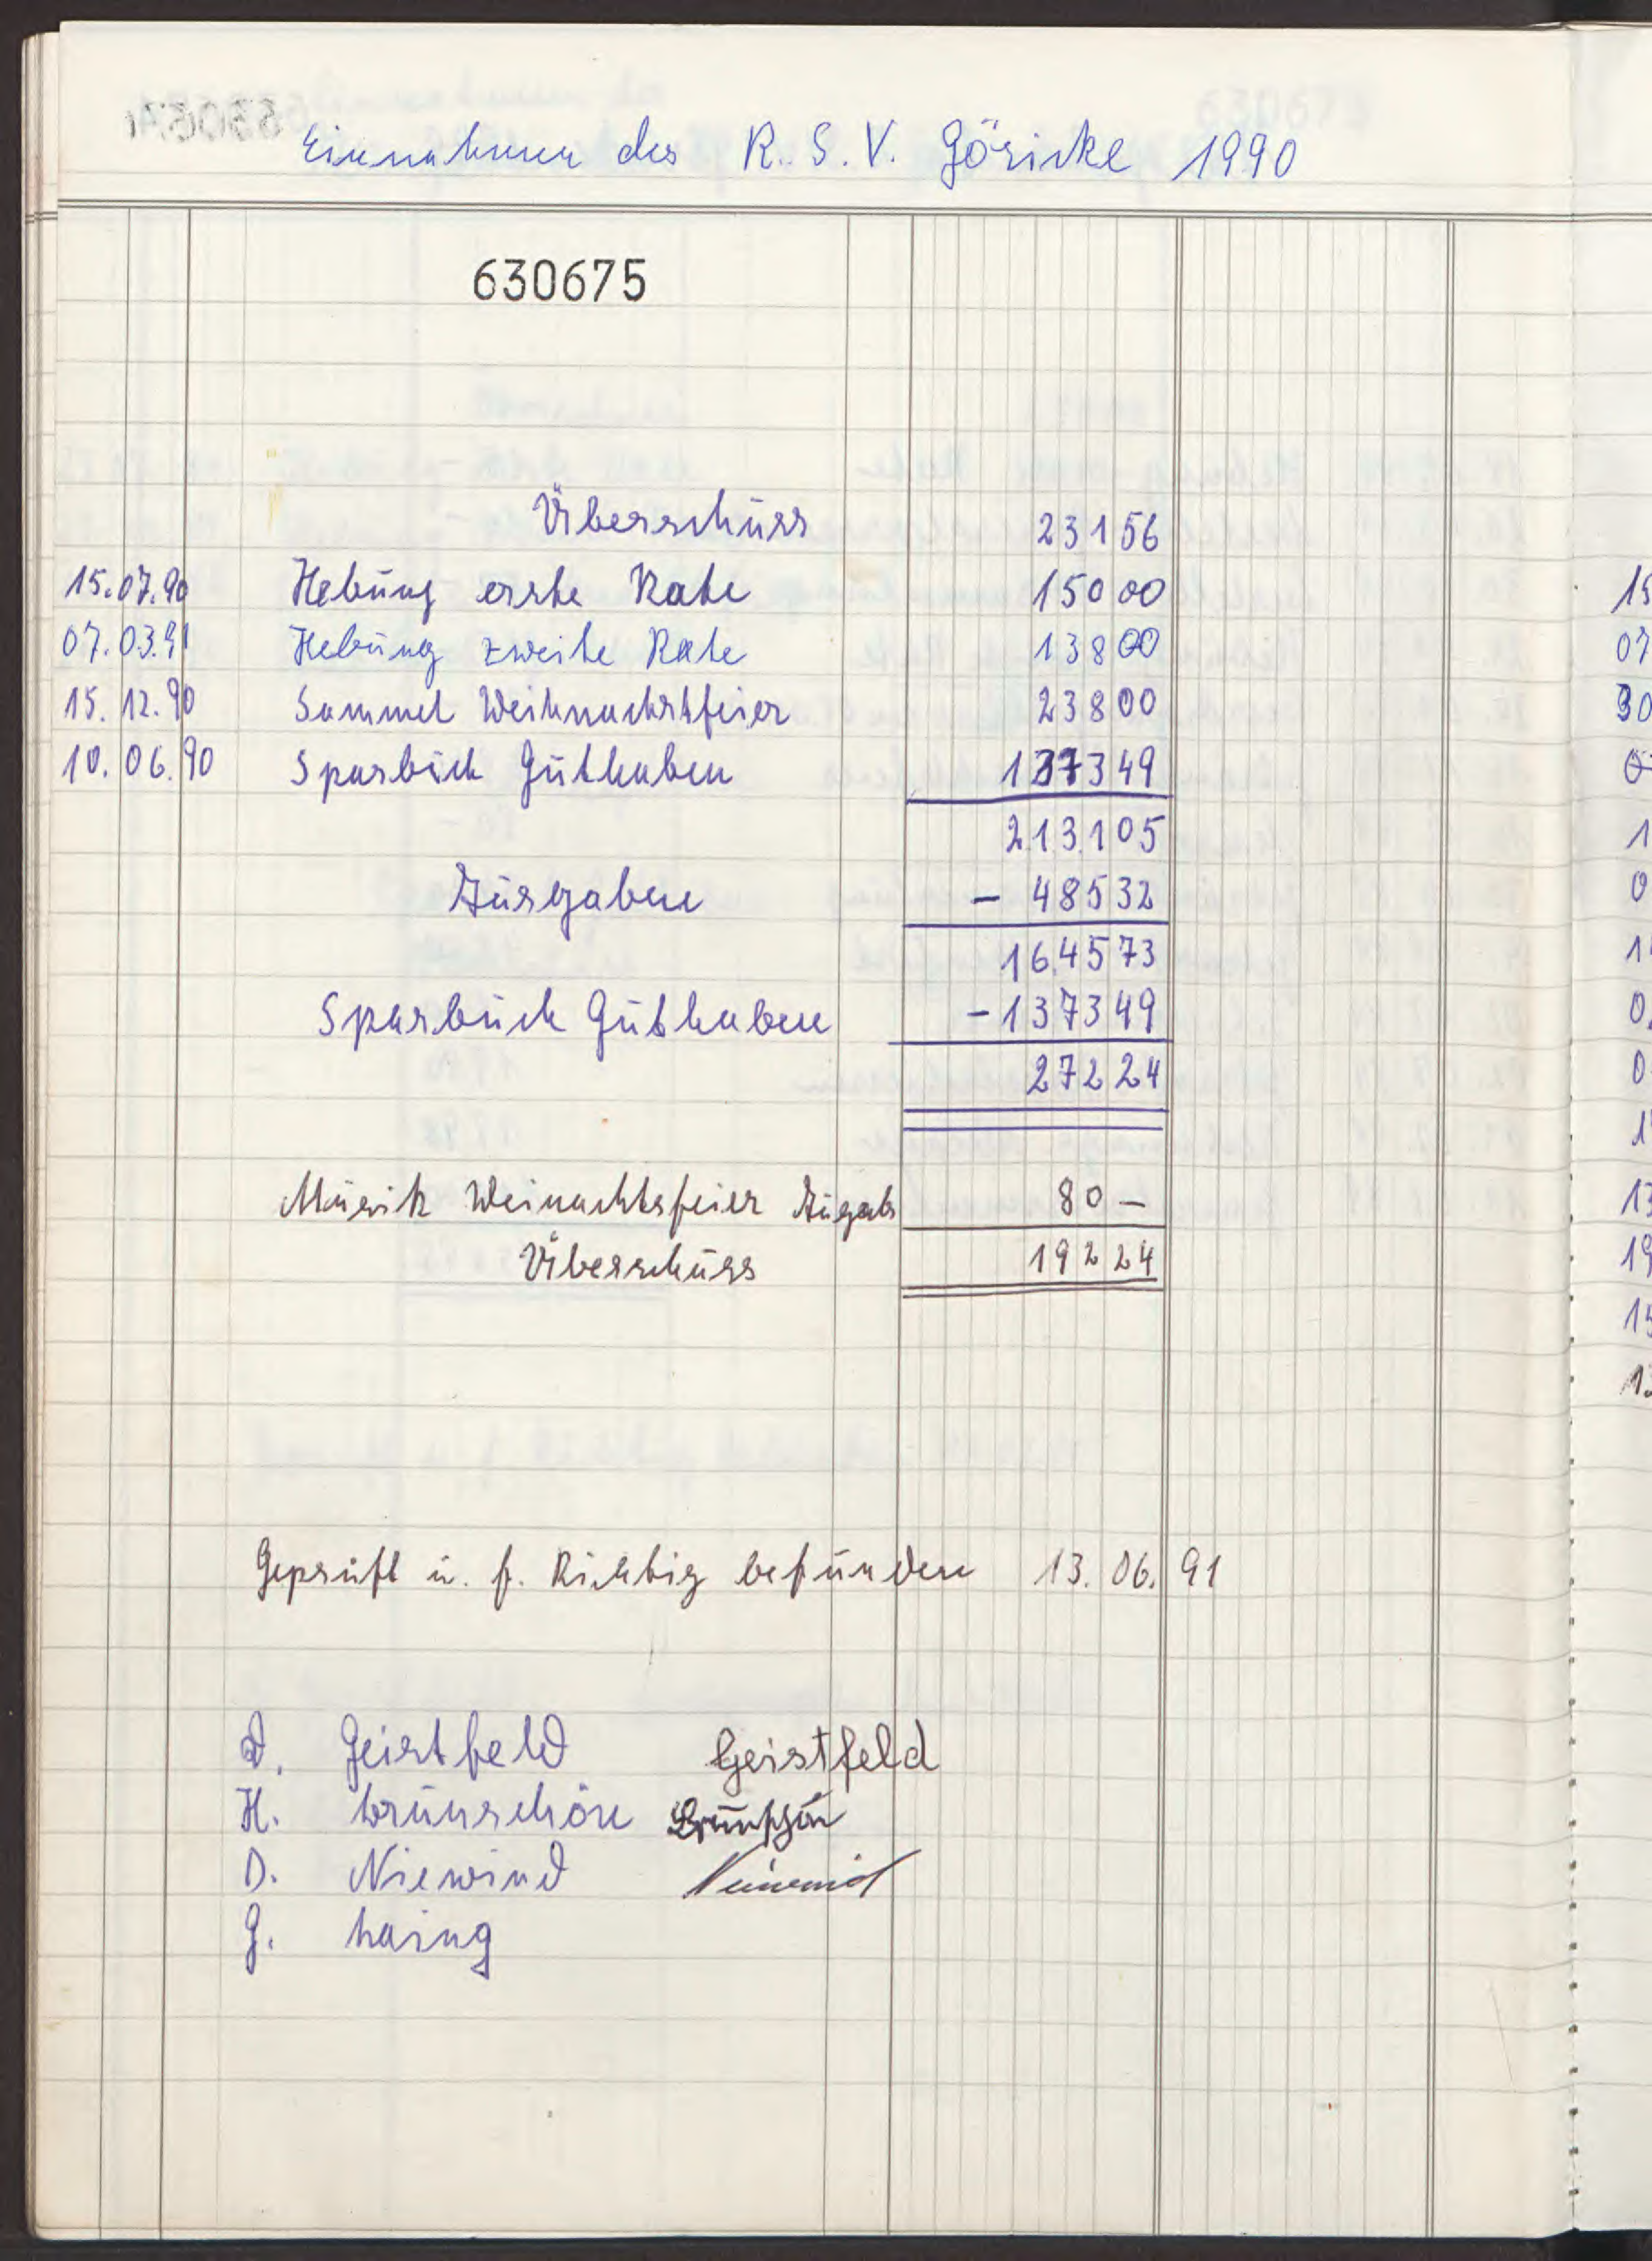 Einnahmen des R. S. V. Göricke 1990
630675
Überschuss 231 56
15.07.90 Hebung erste Rate 150 00
07.03.91 Hebung zweite Rate 138 00
15.12.90 Sammel Weihnachtsfeier 238 00
10.06.90 Sparbuch Guthaben 1373 49
2.13.1 05
Ausgaben – 485 32
16.45 73
Sparbuch Guthaben – 1373 49
272 24
Musik Weinachtsfeier Ausgab 80 –
Überschuss 192 24
Geprüft u. f. Richtig befunden 13.06.91
Geistfeld Geistfeld
H. Brünschön Brünschön
D. Niewind Niewind
G.
15
07
30
1
0
1
0
0
1
13
19
15